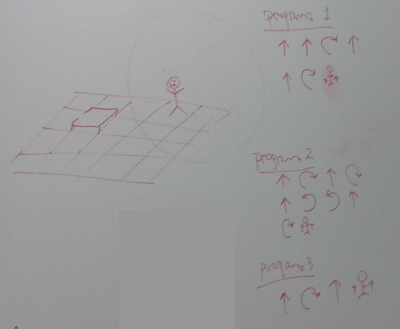 program 1
↑ ↑ ↻ ↑
↑ ↻
program 2
↑ ↻ ↑ ↻
↑ ↺ ↺ ↑
↻
program 3
↑ ↻ ↑